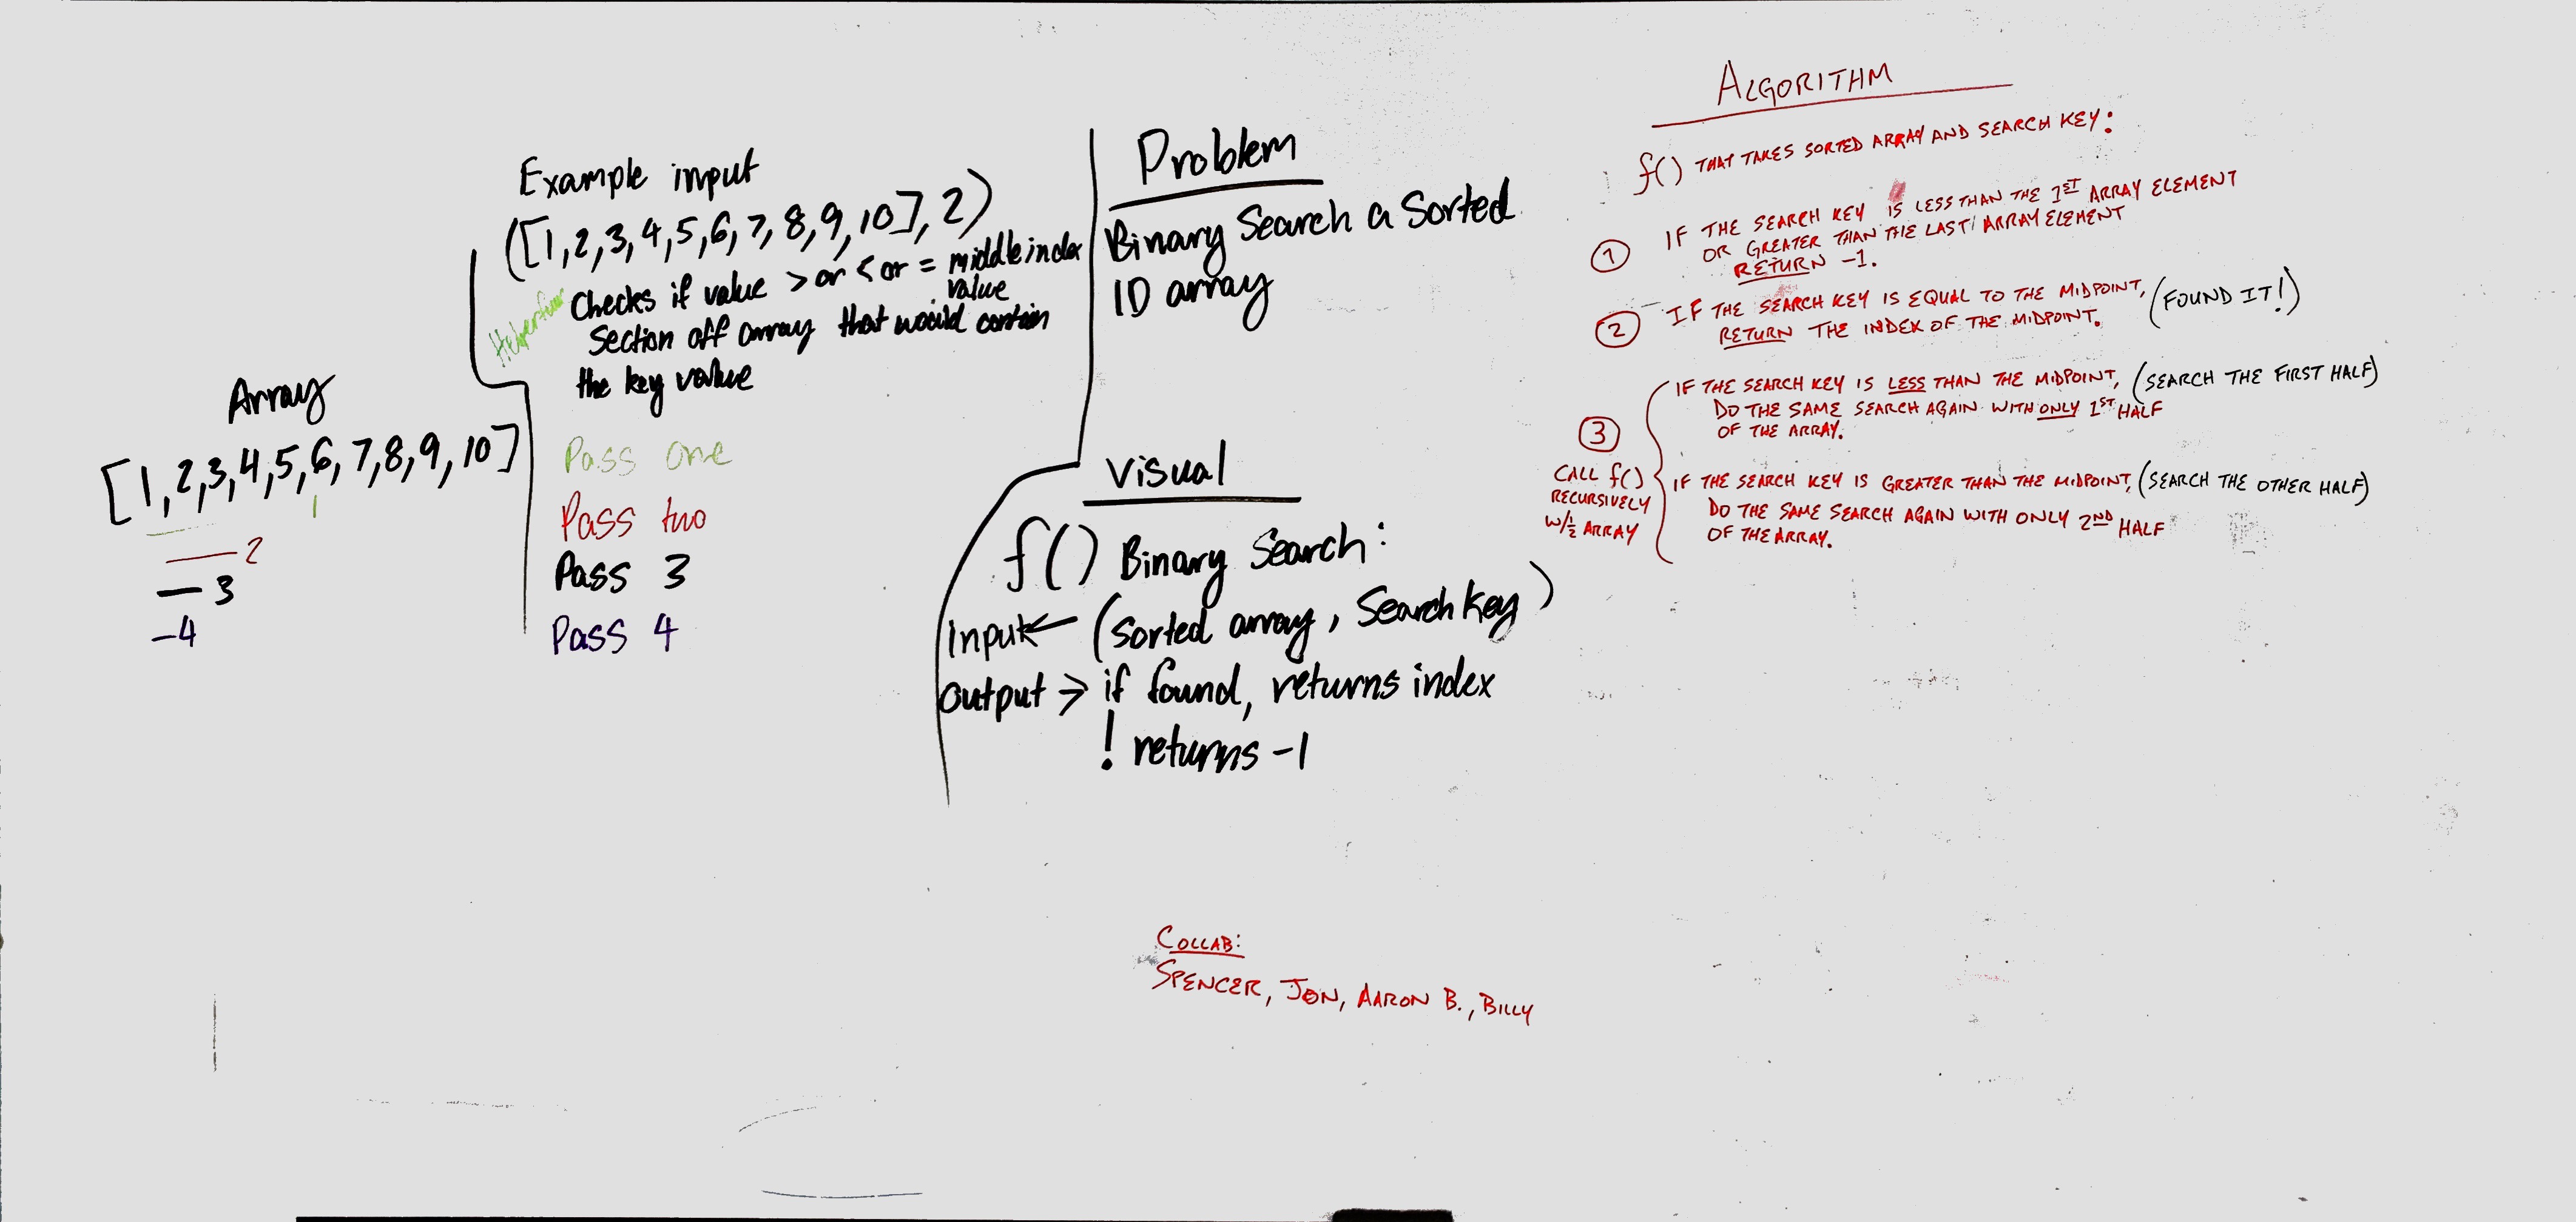 Array
[1,2,3,4,5,6,7,8,9,10]
1
2
3
-4
Example input
([1,2,3,4,5,6,7,8,9,10],2)
Checks if value > or < or = middle index
value
Section off array that would contain
the key value
Pass one
Pass two
Pass 3
Pass 4
Problem
Binary Search a Sorted
1D array
Visual
f() Binary Search:
input ← (sorted array, Search Key)
output > if found, returns index
! returns -1
ALGORITHM
f() THAT TAKES SORTED ARRAY AND SEARCH KEY:
① IF THE SEARCH KEY IS LESS THAN THE 1ST ARRAY ELEMENT
OR GREATER THAN THE LAST ARRAY ELEMENT
RETURN -1.
② IF THE SEARCH KEY IS EQUAL TO THE MIDPOINT, (FOUND IT!)
RETURN THE INDEX OF THE MIDPOINT.
③
CALL f()
RECURSIVELY
W/½ ARRAY
IF THE SEARCH KEY IS LESS THAN THE MIDPOINT, (SEARCH THE FIRST HALF)
DO THE SAME SEARCH AGAIN WITH ONLY 1ST HALF
OF THE ARRAY.
IF THE SEARCH KEY IS GREATER THAN THE MIDPOINT, (SEARCH THE OTHER HALF)
DO THE SAME SEARCH AGAIN WITH ONLY 2ND HALF
OF THE ARRAY.
COLLAB:
SPENCER, JON, AARON B., BILLY